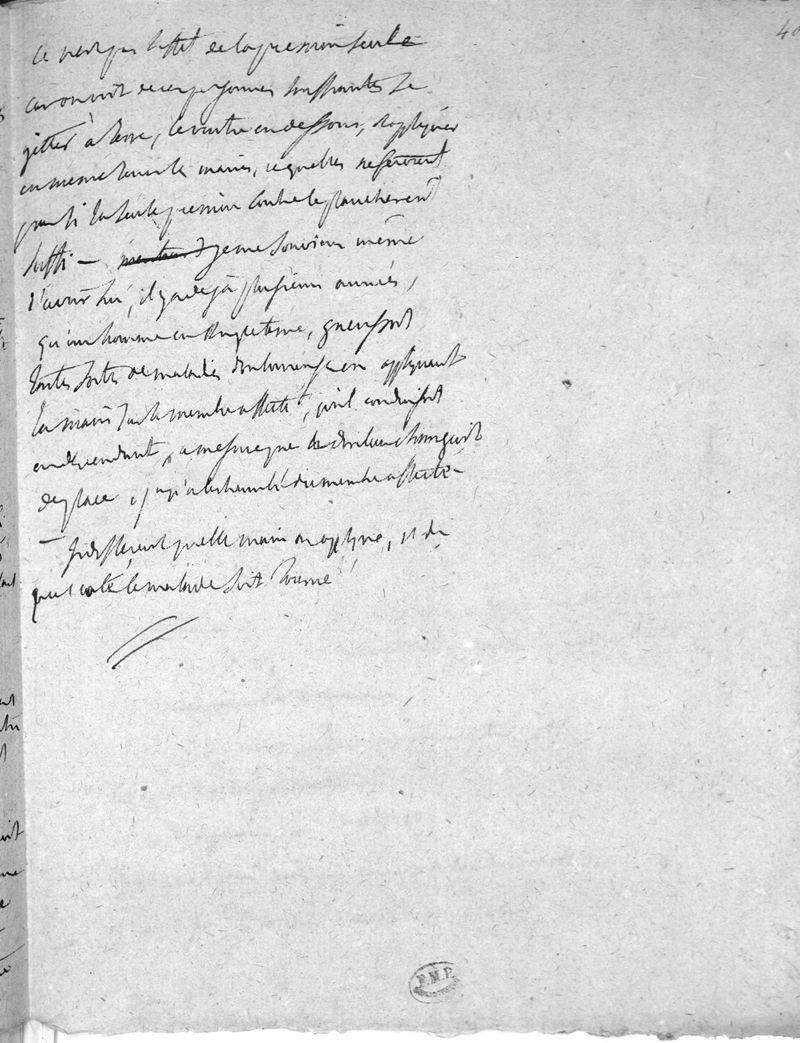 40
ce n'est pas l'effet de la pression seule
car on voit de ces personnes souffrantes se
jetter à terre, le ventre en dessous, s'appliquer
en même tems les mains, ce qu'elles ne feroient
pas si la seule pression contre le plancher eut
suffi — je me souviens même
d'avoir lu, il y a déjà plusieurs années,
qu'un homme en Angleterre, guerissoit
toutes sortes de maladies en appliquant
la main sur le membre affecté, qu'il conduisoit
en descendant, a mesure que la douleur changeoit
de place, jusqu'a l'extremité du membre affecté —
— Indifférent quelle main on applique, et de
quel coté le malade soit tourné
F.M.P.